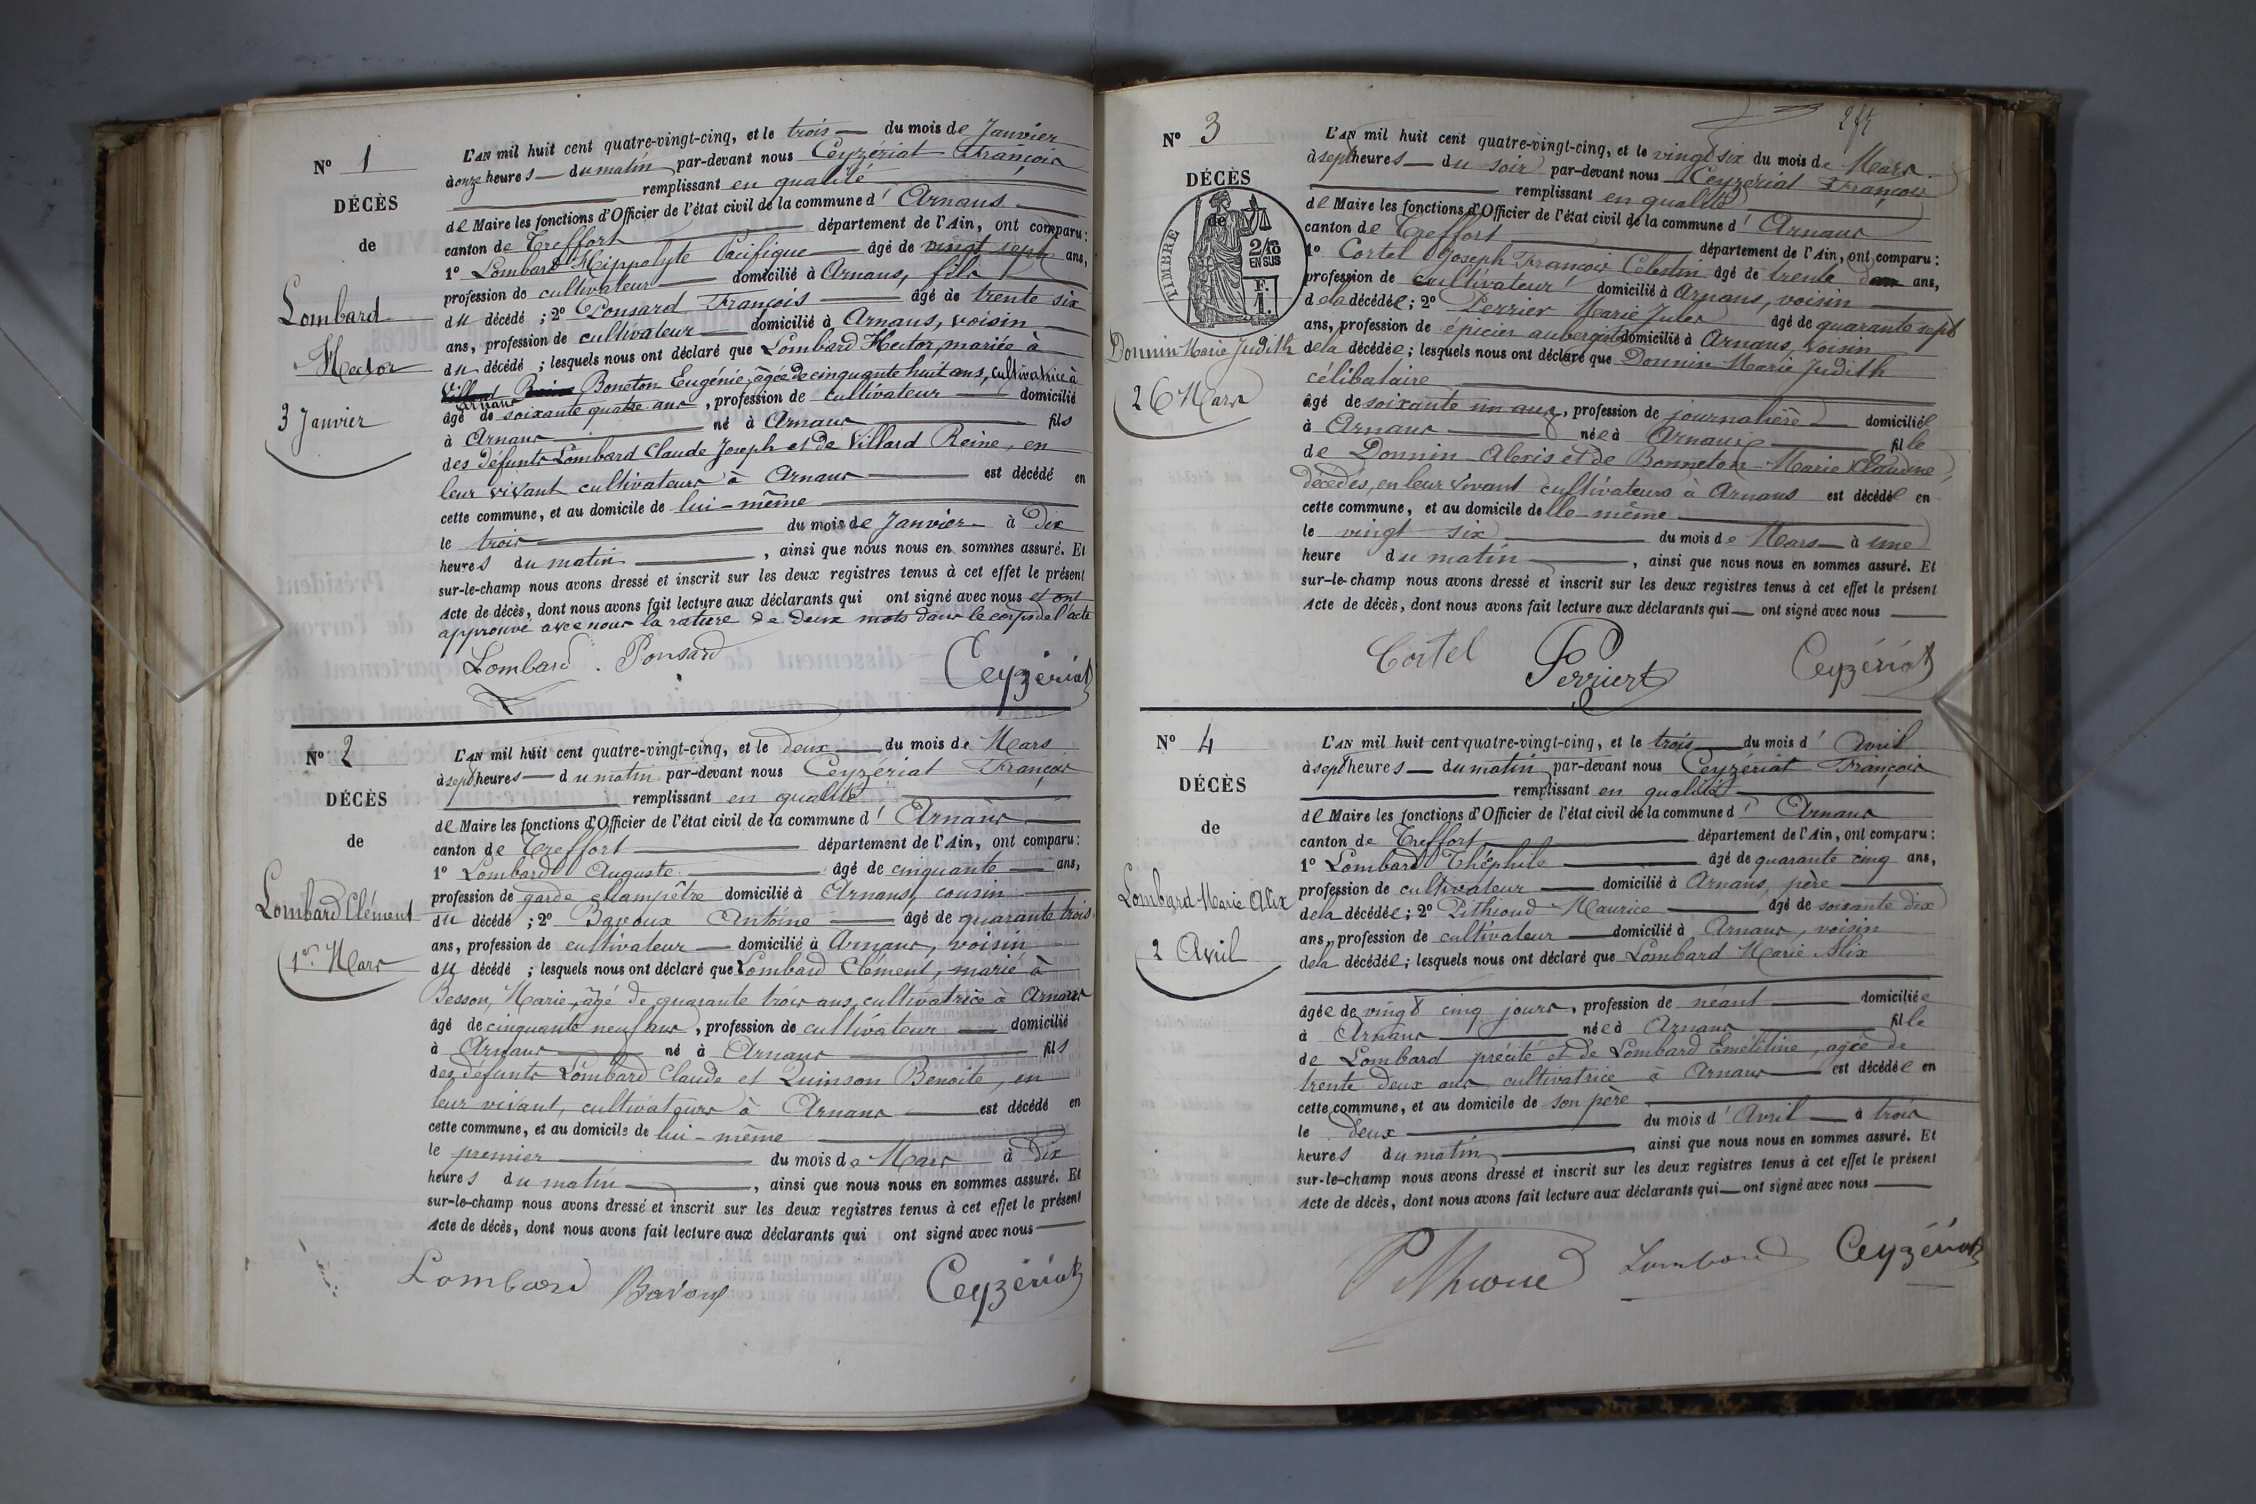 N° 1
DÉCÈS
de
Lombard
Hector
3 Janvier
L'AN mil huit cent quatre-vingt-cinq, et le trois du mois de Janvier
à onze heures du matin par-devant nous Ceyzériat François
remplissant en qualité
de Maire les fonctions d'Officier de l'état civil de la commune d' Arnans
canton de Treffort département de l'Ain, ont comparu :
1° Lombard Hippolyte Pacifique âgé de vingt sept ans,
profession de cultivateur domicilié à Arnans, fils
du décédé ; 2° Ponsard François âgé de trente six
ans, profession de cultivateur domicilié à Arnans, voisin
du décédé ; lesquels nous ont déclaré que Lombard Hector, mariée à
Villard Reine Boneton Eugénie, âgée de cinquante huit ans, cultivatrice à
Arnans
âgé de soixante quatre ans, profession de cultivateur domicilié
à Arnans né à Arnans fils
des défunts Lombard Claude Joseph et de Villard Reine, en
leur vivant cultivateurs à Arnans est décédé en
cette commune, et au domicile de lui-même
le trois du mois de Janvier à dix
heures du matin, ainsi que nous nous en sommes assuré. Et
sur-le-champ nous avons dressé et inscrit sur les deux registres tenus à cet effet le présent
Acte de décès, dont nous avons fait lecture aux déclarants qui ont signé avec nous et ont
approuvé avec nous la rature de deux mots dans le corps de l'acte
Lombard Ponsard Ceyzériat
N° 2
DÉCÈS
de
Lombard Clément
1er Mars
L'AN mil huit cent quatre-vingt-cinq, et le deux du mois de Mars
à sept heures du matin par-devant nous Ceyzériat François
remplissant en qualité
de Maire les fonctions d'Officier de l'état civil de la commune d' Arnans
canton de Treffort département de l'Ain, ont comparu :
1° Lombard Auguste âgé de cinquante ans,
profession de garde champêtre domicilié à Arnans, cousin
du décédé ; 2° Bavoux Antoine âgé de quarante trois
ans, profession de cultivateur domicilié à Arnans, voisin
du décédé ; lesquels nous ont déclaré que Lombard Clément, marié à
Besson, Marie, âgé de quarante trois ans, cultivatrice à Arnans
âgé de cinquante neuf ans, profession de cultivateur domicilié
à Arnans né à Arnans fils
des défunts Lombard Claude et Quinson Benoite, en
leur vivant, cultivateurs à Arnans est décédé en
cette commune, et au domicile de lui-même
le premier du mois de Mars à dix
heures du matin, ainsi que nous nous en sommes assuré. Et
sur-le-champ nous avons dressé et inscrit sur les deux registres tenus à cet effet le présent
Acte de décès, dont nous avons fait lecture aux déclarants qui ont signé avec nous
Lombard Bavoux Ceyzériat
N° 3
DÉCÈS
de
TIMBRE
2/10
EN SUS
F.
1.
Donnin Marie Judith
26 Mars
L'AN mil huit cent quatre-vingt-cinq, et le vingt six du mois de Mars
à sept heures du soir par-devant nous Ceyzériat François
remplissant en qualité
de Maire les fonctions d'Officier de l'état civil de la commune d' Arnans
canton de Treffort département de l'Ain, ont comparu :
1° Cortel Joseph François Celestin âgé de trente ans,
profession de cultivateur domicilié à Arnans, voisin
de la décédée ; 2° Perrier Marie Jules âgé de quarante sept
ans, profession de épicier aubergiste domicilié à Arnans, voisin
de la décédée ; lesquels nous ont déclaré que Donnin Marie Judith
célibataire
âgé de soixante un ans, profession de journalière domiciliée
à Arnans née à Arnans fille
de Donnin Alexis et de Bonneton Marie Claudine,
décédés, en leur vivant cultivateurs à Arnans est décédée en
cette commune, et au domicile d'elle-même
le vingt six du mois de Mars à une
heure du matin, ainsi que nous nous en sommes assuré. Et
sur-le-champ nous avons dressé et inscrit sur les deux registres tenus à cet effet le présent
Acte de décès, dont nous avons fait lecture aux déclarants qui ont signé avec nous
Cortel Perrier Ceyzériat
N° 4
DÉCÈS
de
Lombard Marie Alix
2 Avril
L'AN mil huit cent quatre-vingt-cinq, et le trois du mois d' Avril
à sept heures du matin par-devant nous Ceyzériat François
remplissant en qualité
de Maire les fonctions d'Officier de l'état civil de la commune d' Arnans
canton de Treffort département de l'Ain, ont comparu :
1° Lombard Théphile âgé de quarante cinq ans,
profession de cultivateur domicilié à Arnans, père
de la décédée ; 2° Pithioud Maurice âgé de soixante dix
ans, profession de cultivateur domicilié à Arnans, voisin
de la décédée ; lesquels nous ont déclaré que Lombard Marie Alix
âgée de vingt cinq jours, profession de néant domiciliée
à Arnans née à Arnans fille
de Lombard précité et de Lombard Emélitine, agée de
trente deux ans cultivatrice à Arnans est décédée en
cette commune, et au domicile de son père
le deux du mois d' Avril à trois
heures du matin, ainsi que nous nous en sommes assuré. Et
sur-le-champ nous avons dressé et inscrit sur les deux registres tenus à cet effet le présent
Acte de décès, dont nous avons fait lecture aux déclarants qui ont signé avec nous
Pithioud Lombard Ceyzériat